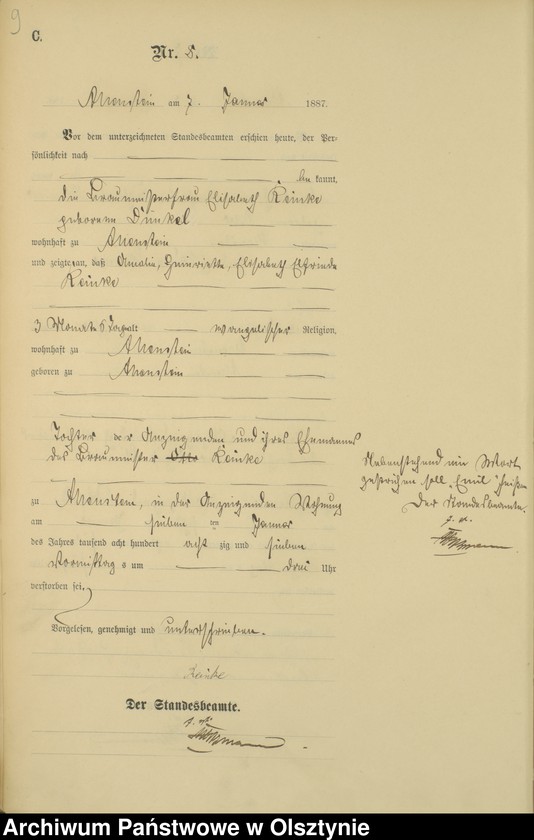 9
C.
Nr. 8.
Allenstein am 7. Januar 1887.
Vor dem unterzeichneten Standesbeamten erschien heute, der Per-
sönlichkeit nach
be kannt,
die Braumeisterfrau Elisabeth Reinke
geborene Dünkel
wohnhaft zu Allenstein
und zeigte an, daß Amalie, Henriette, Elisabeth Elfriede
Reinke
3 Monate 8 Tage alt evangelischer Religion,
wohnhaft zu Allenstein
geboren zu Allenstein
Tochter der Anzeigenden und ihres Ehemannes
des Braumeister Otto Reinke
zu Allenstein, in der Anzeigenden Wohnung
am sieben ten Januar
des Jahres tausend acht hundert acht zig und sieben
Vormittag s um drei Uhr
verstorben sei.
Vorgelesen, genehmigt und unterschrieben.
Reinke
Der Standesbeamte.
Nebenstehend ein Wort
gestrichen soll Emil heißen
Der Standesbeamte.
Archiwum Państwowe w Olsztynie